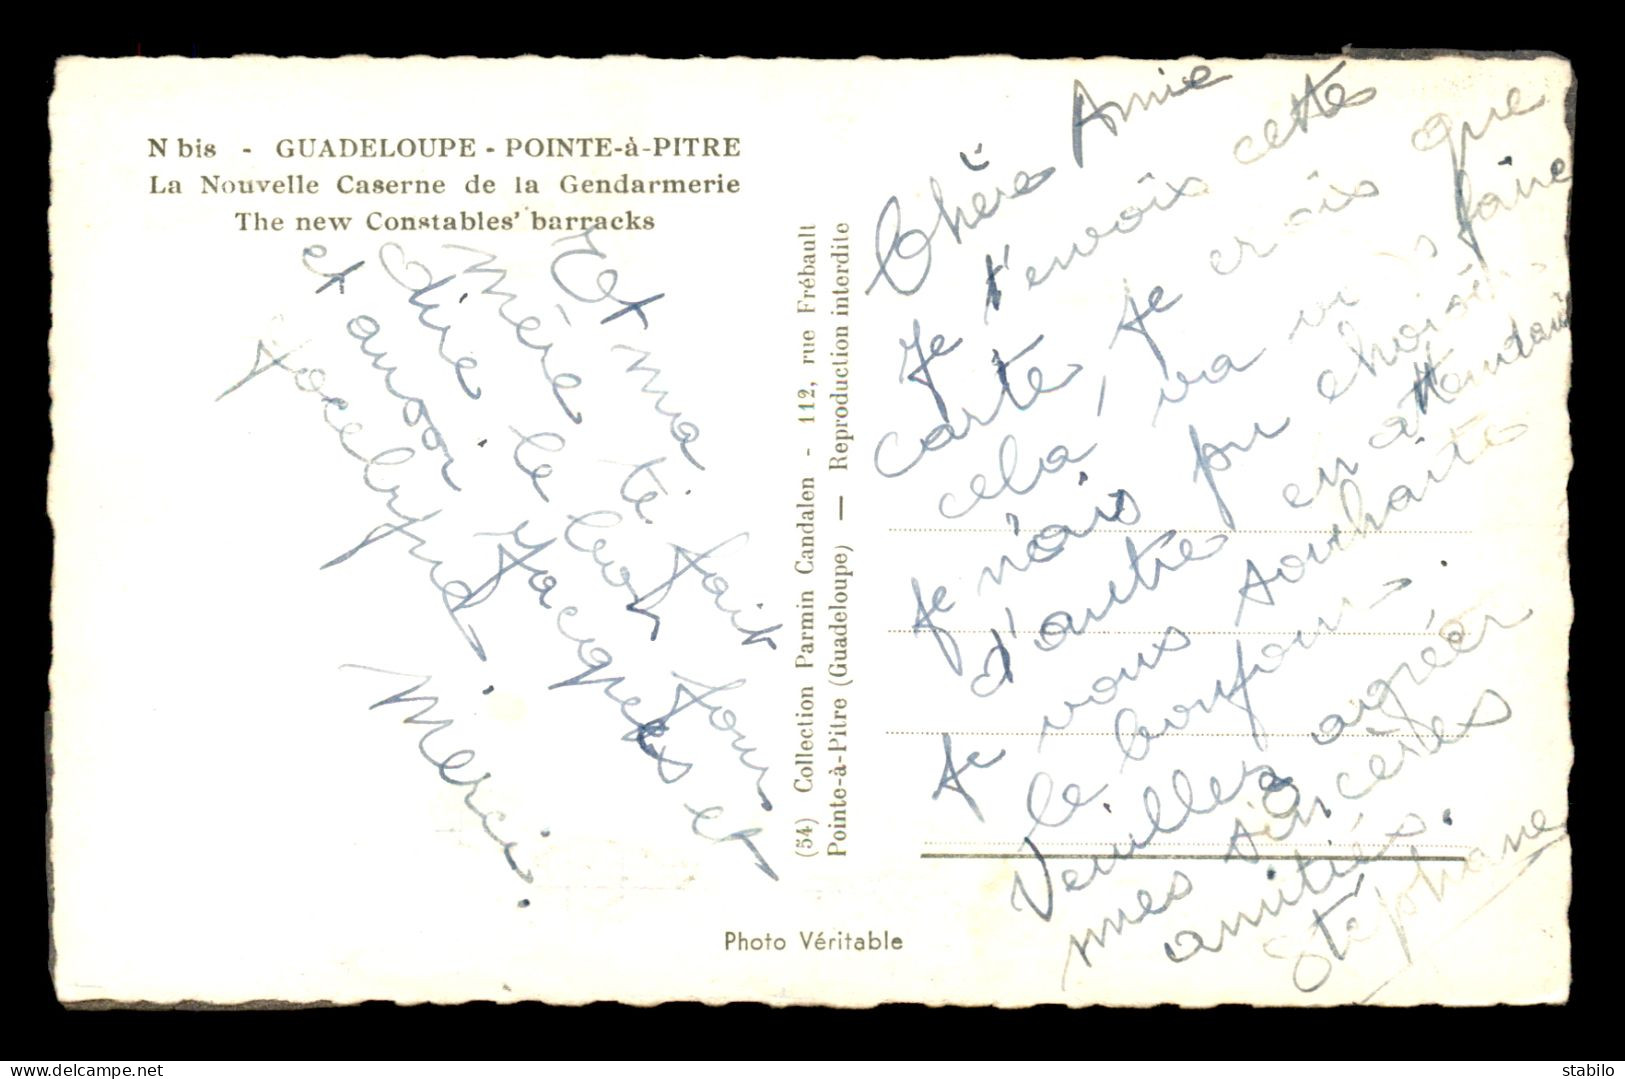 N bis - GUADELOUPE - POINTE-à-PITRE
La Nouvelle Caserne de la Gendarmerie
The new Constables' barracks
Et ma
mère te fait
dire le bon jour
et aussi Jacques et
Jocelyne.
Merci.
(54) Collection Parmin Candalen - 112, rue Frébault
Pointe-à-Pitre (Guadeloupe) — Reproduction interdite
Chère Amie
Je t'envoix cette
carte, je crois que
cela va faire
je n'ais pu choisir
d'autre en attendant
Je vous souhaite
le bonjour.
Veuillez agréer
mes sincères
amitiés.
Stéphane
Photo Véritable
stabilo